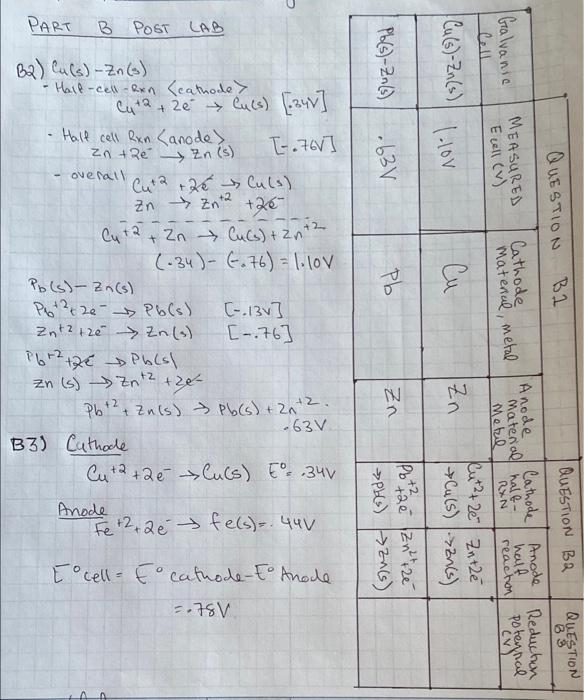 PART B POST LAB
B2) Cu(s) - Zn(s)
- Half-cell-Rxn <cathode>
Cu+2 + 2e- → Cu(s) [.34V]
- Half cell Rxn <anode>
Zn +2e- → Zn(s) [-.76V]
- overall
Cu+2 +2e- → Cu(s)
Zn → Zn+2 +2e-
Cu+2 + Zn → Cu(s) + Zn+2
(.34) - (-.76) = 1.10V
Pb(s) - Zn(s)
Pb+2 + 2e- → Pb(s) [-.13V]
Zn+2 +2e- → Zn(s) [-.76]
Pb+2 +2e- → Pb(s)
Zn (s) → Zn+2 +2e-
Pb+2 + Zn(s) → Pb(s) + Zn+2
.63V
B3) Cathode
Cu+2 +2e- → Cu(s) E°= .34V
Anode
Fe+2 +2e- → fe(s) = -.44V
E°cell = E° cathode - E° Anode
= .78V
QUESTION B1
QUESTION B2
QUESTION B3
Galvanic Cell
MEASURED E cell (V)
Cathode material, metal
Anode material Metal
Cathode half-RXN
Anode half reaction
Reduction potential (V)
Cu(s)-Zn(s)
1.10V
Cu
Zn
Cu+2 + 2e-
→ Cu(s)
Zn+2e-
→ Zn(s)
Pb(s)-Zn(s)
.63V
Pb
Zn
Pb+2 +2e-
→ Pb(s)
Zn2+ +2e-
→ Zn(s)